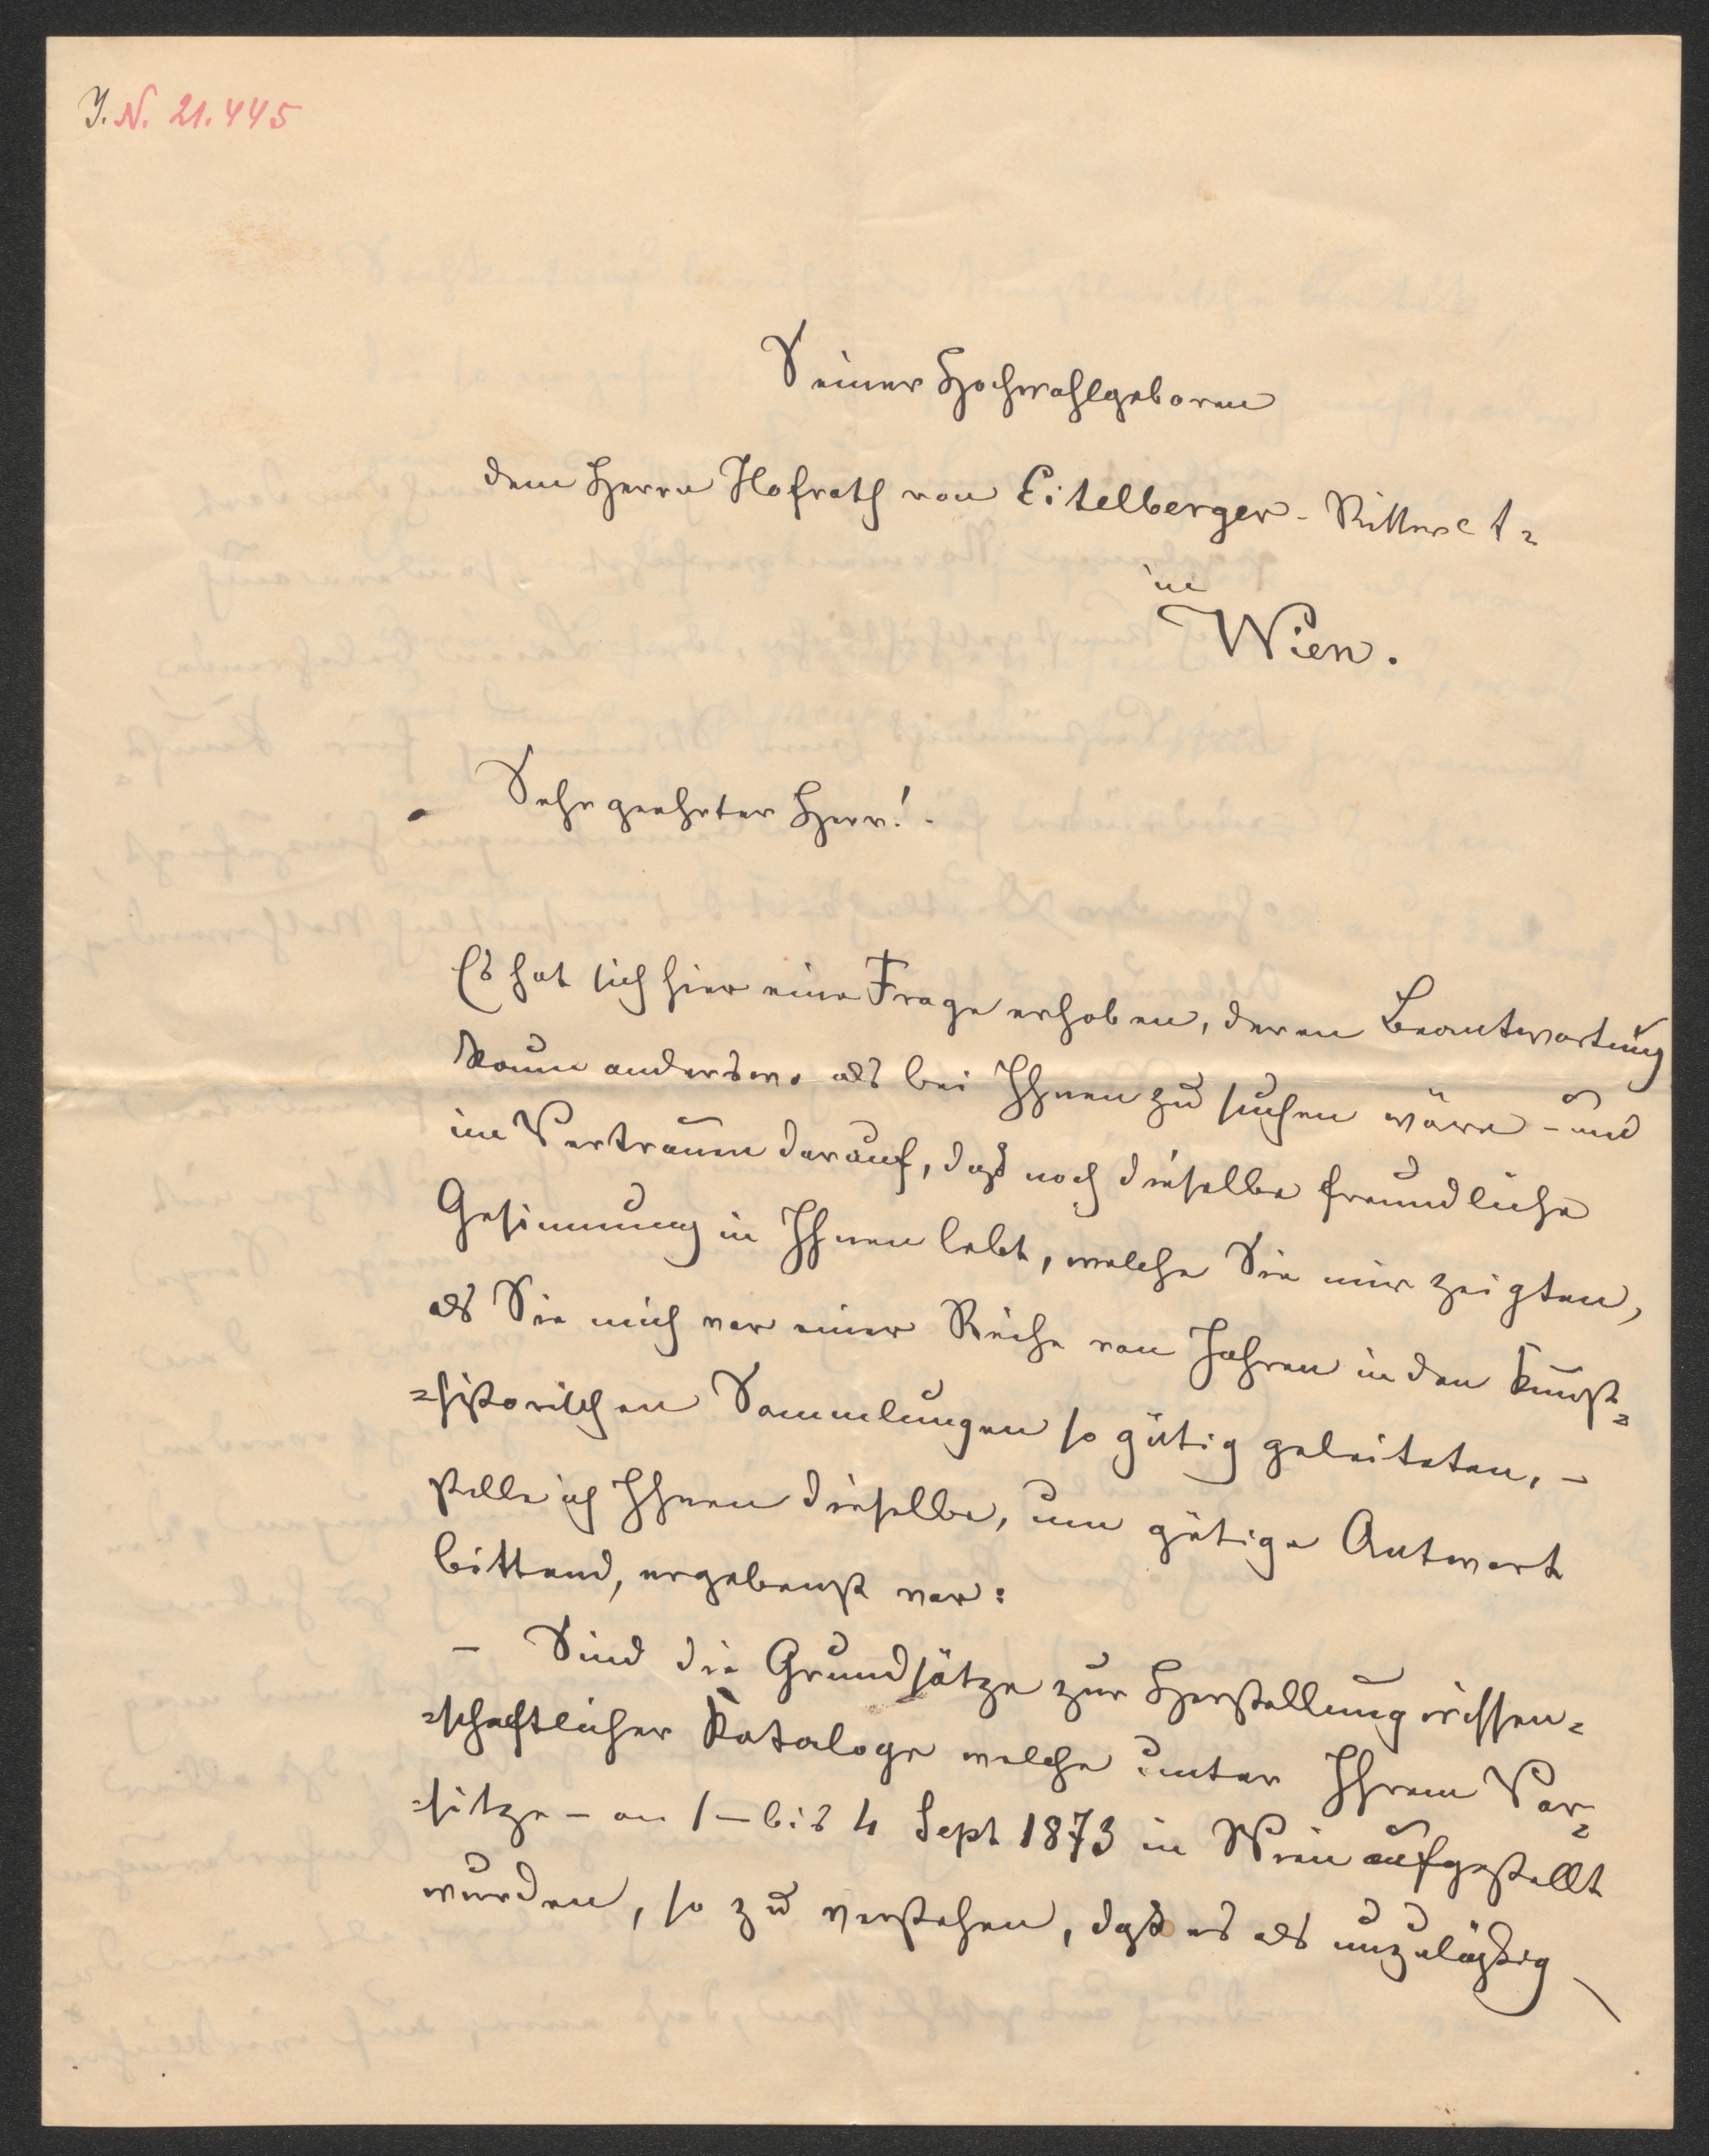 J.N. 21.445
Seiner Hochwohlgeboren
dem Herrn Hofrath von Eitelberger-Ritter et=
in
Wien.
Sehr geehrter Herr!
Es hat sich hier eine Frage erhoben, deren Beantwortung
kaum anderswo als bei Ihnen zu suchen wäre – und
im Vertrauen darauf, daß noch dieselbe freundliche
Gesinnung in Ihnen lebt, welche Sie mir zeigten,
als Sie mich vor einer Reihe von Jahren in den kunst=
=historischen Sammlungen so gütig geleiteten, –
stelle ich Ihnen dieselbe, um gütige Antwort
bittend, ergebenst vor:
– Sind die Grundsätze zur Herstellung wissen=
=schaftlicher Kataloge welche unter Ihrem Vor=
=sitze – am 1 – bis 4 Sept 1873 in Wien aufgestellt
wurden, so zu verstehen, daß es als unzuläßig